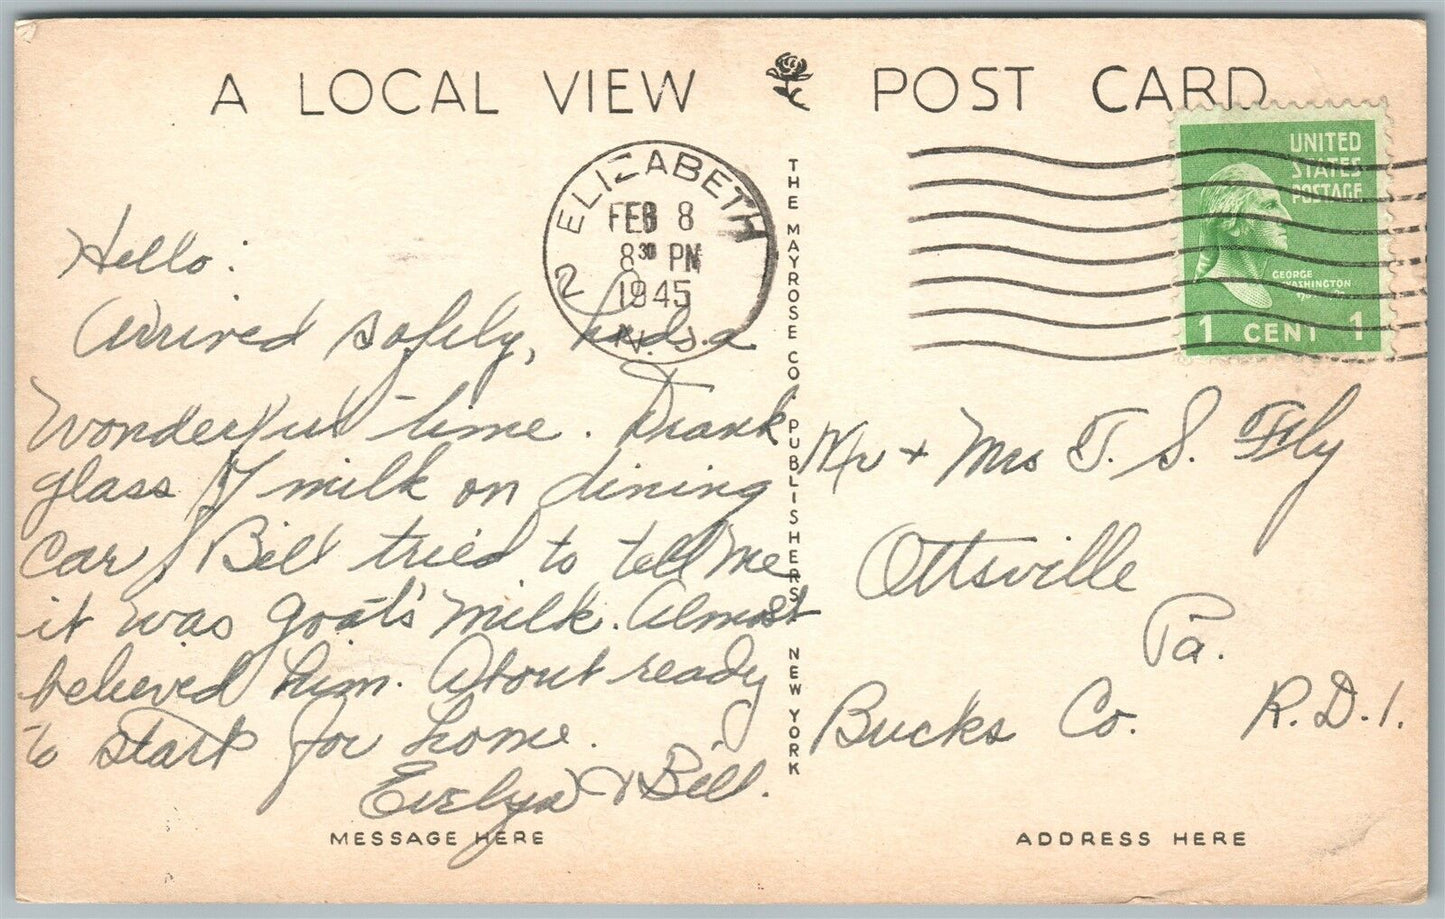 A LOCAL VIEW POST CARD
ELIZABETH
FEB 8
8 30 PM
1945
2 N.J.
UNITED
STATES
POSTAGE
GEORGE
WASHINGTON
1 CENT 1
THE MAYROSE CO PUBLISHERS NEW YORK
Hello:
Arrived safely, had a
Wonderful time. Drank
glass of milk on dining
car, Bill tried to tell me
it was goat's milk. Almost
believed him. About ready
to start for home.
Evelyn & Bill.
Mr + Mrs T. S. Fly
Ottsville
Pa.
Bucks Co. R.D.1.
MESSAGE HERE
ADDRESS HERE